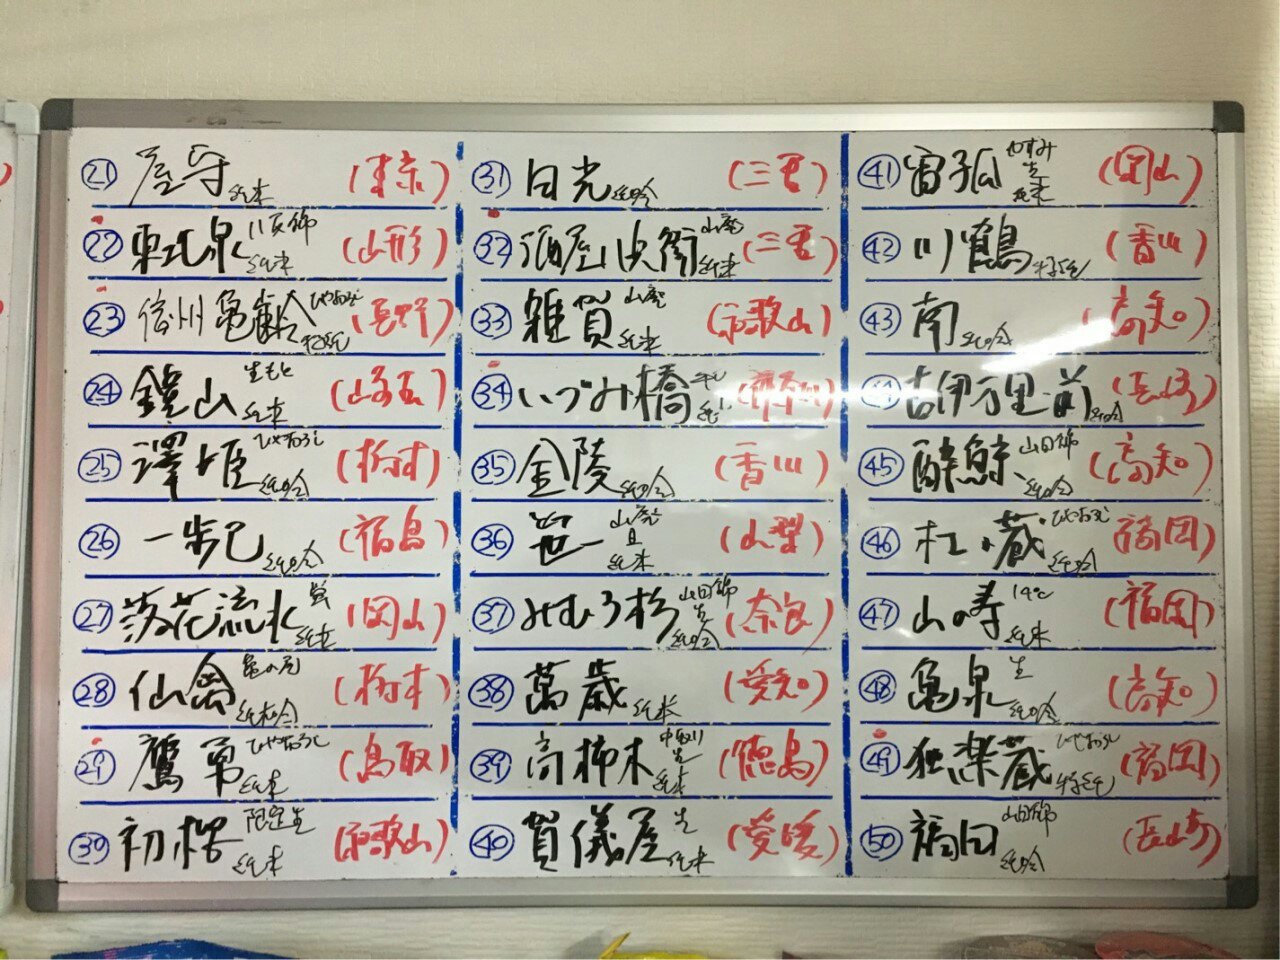 ㉑ 屋守 純米 (東京)
㉒ 東北泉 純米 (山形)
㉓ 信州亀齢 ひやおろし 特純 (長野)
㉔ 鏡山 生もと 純米
㉕ 澤姫 ひやおろし 純吟 (栃木)
㉖ 一歩己 純吟 (福島)
㉗ 落花流水 純米 (岡山)
㉘ 仙禽 亀の尾 (栃木)
㉙ 鷹勇 ひやおろし 純米 (鳥取)
㉚ 初桜 限定生 純米 (和歌山)
㉛ 日光 純吟 (三重)
㉜ 酒屋八兵衛 山廃 純米 (三重)
㉝ 雑賀 山廃 純米 (和歌山)
㉞ いづみ橋
㉟ 金陵 純吟 (香川)
㊱ 笹一 山廃 純米 (山梨)
㊲ みむろ杉 山田錦 生 純吟 (奈良)
㊳ 萬歳 純米 (愛知)
㊴ 高柿木 中取り 生 純米 (徳島)
㊵ 賀儀屋 生 純米 (愛媛)
㊶ 宙狐 生 純米 (岡山)
㊷ 川鶴 特純 (香川)
㊸ 南 純吟 (高知)
㊹ 古伊万里 前 純吟
㊺ 酔鯨 山田錦 純吟 (高知)
㊻ 杜の蔵 ひやおろし 純吟 (福岡)
㊼ 山の寿 純米 (福岡)
㊽ 亀泉 生 純吟 (高知)
㊾ 独楽蔵 ひやおろし 特純 (福岡)
㊿ 福田 山田錦 純吟 (長崎)